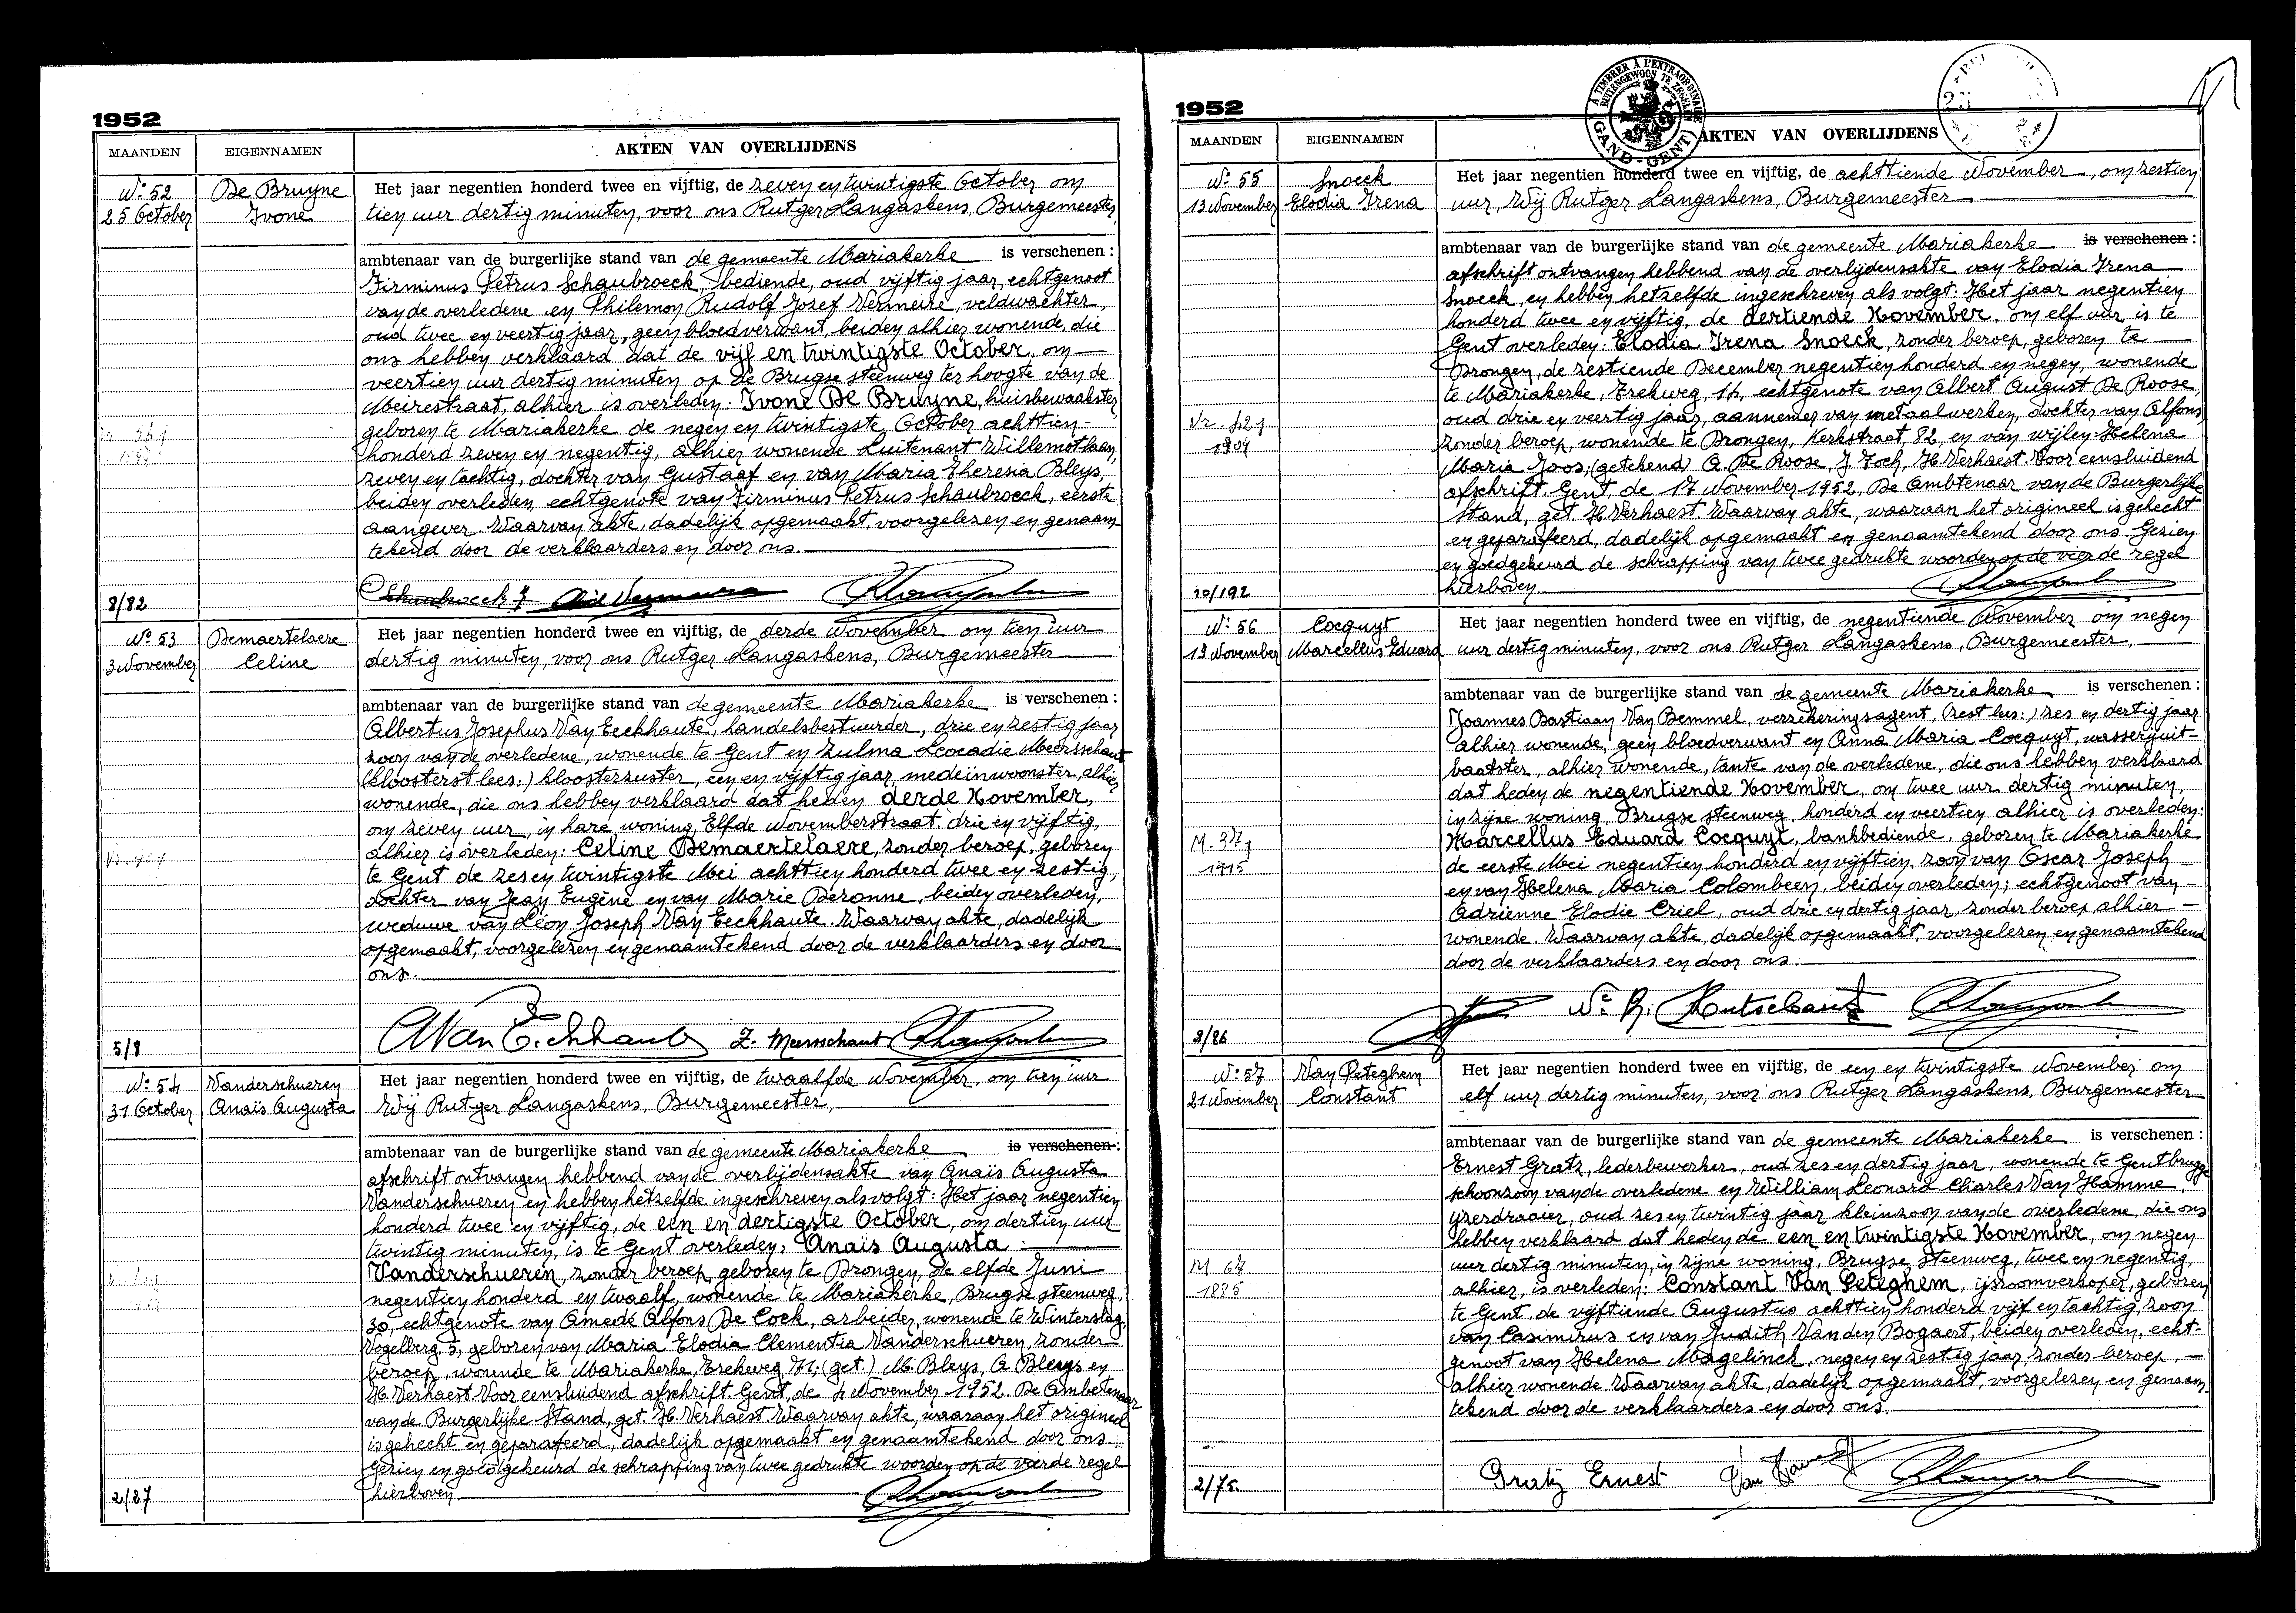 1952
MAANDEN
EIGENNAMEN
AKTEN VAN OVERLIJDENS
N° 52
25 October
De Bruyne
Ivone
Het jaar negentien honderd twee en vijftig, de zeven en twintigste October om
tien uur dertig minuten, voor ons Rutger Langaskens, Burgemeester,
ambtenaar van de burgerlijke stand van de gemeente Mariakerke is verschenen :
Firminus Petrus Schaubroeck, bediende, oud vijftig jaar, echtgenoot
van de overledene en Philemon Rudolf Jozef Vermeire, veldwachter,
oud twee en veertig jaar, geen bloedverwant, beiden alhier wonende, die
ons hebben verklaard dat de vijf en twintigste October, om
veertien uur dertig minuten op de Brugse steenweg ter hoogte van de
Meirestraat, alhier is overleden: Ivone De Bruyne, huisbewaakster,
geboren te Mariakerke de negen en twintigste October achttien-
honderd zeven en negentig, alhier wonende Luitenant Willemotlaan,
zeven en tachtig, dochter van Gustaaf en van Maria Theresia Bleys,
beiden overleden, echtgenote van Firminus Petrus Schaubroeck, eerste
aangever. Waarvan akte, dadelijk opgemaakt, voorgelezen en genaam-
tekend door de verklaarders en door ons.
8/82
Schaubroeck F
N° 53
3 November
Demaertelaere
Celine
Het jaar negentien honderd twee en vijftig, de derde November om tien uur
dertig minuten, voor ons Rutger Langaskens, Burgemeester
ambtenaar van de burgerlijke stand van de gemeente Mariakerke is verschenen :
Albertus Josephus Van Eeckhaute, handelsbestuurder, drie en zestig jaar
zoon van de overledene, wonende te Gent en Zulma Leocadie Meersschaut
(kloosterst lees:) kloosterzuster, een en vijftig jaar, medeinwoonster, alhier
wonende, die ons hebben verklaard dat heden derde November,
om zeven uur, in hare woning, Elfde Novemberstraat drie en vijftig,
alhier is overleden: Celine Demaertelaere, zonder beroep, geboren
te Gent de zes en twintigste Mei achttien honderd twee en zestig,
dochter van Jean Eugène en van Marie Deronne, beiden overleden,
weduwe van Léon Joseph Van Eeckhaute. Waarvan akte, dadelijk
opgemaakt, voorgelezen en genaamtekend door de verklaarders en door
ons.
5/8
AVan Eeckhaute Z. Meersschaut
N° 54
31 October
Vanderschueren
Anaïs Augusta
Het jaar negentien honderd twee en vijftig, de twaalfde November, om tien uur
Wij Rutger Langaskens, Burgemeester,
ambtenaar van de burgerlijke stand van de gemeente Mariakerke is verschenen :
afschrift ontvangen hebbend van de overlijdensakte van Anaïs Augusta
Vanderschueren en hebben hetzelfde ingeschreven als volgt: Het jaar negentien
honderd twee en vijftig, de een en dertigste October, om dertien uur
twintig minuten, is te Gent overleden: Anaïs Augusta
Vanderschueren, zonder beroep, geboren te Drongen, de elfde Juni
negentien honderd en twaalf, wonende te Mariakerke, Brugse steenweg,
30, echtgenote van Amedé Alfons De Cock, arbeider, wonende te Winterslag,
Vogelberg 5, geboren van Maria Elodia Clementia Vanderschueren, zonder
beroep, wonende te Mariakerke, Erekweg, 71; (get.) M. Bleys, A Bleys en
H. Verhaest. Voor eensluidend afschrift Gent, de 4 November 1952. De Ambtenaar
van de Burgerlijke Stand, get. H. Verhaest. Waarvan akte, waaraan het origineel
is gehecht en geparafeerd, dadelijk opgemaakt en genaamtekend door ons.
Gezien en goedgekeurd de schrapping van twee gedrukte woorden op de vierde regel
hierboven.
2/27
1952
À TIMBRER À L'EXTRAORDINAIRE
BUITENGEWOON TE ZEGELEN
GAND-GENT
MAANDEN
EIGENNAMEN
AKTEN VAN OVERLIJDENS
N° 55
13 November
Snoeck
Elodia Irena
Vr. 42 j
1909
Het jaar negentien honderd twee en vijftig, de achttiende November, om zestien
uur, Wij Rutger Langaskens, Burgemeester
ambtenaar van de burgerlijke stand van de gemeente Mariakerke is verschenen :
afschrift ontvangen hebbend van de overlijdensakte van Elodia Irena
Snoeck, en hebben hetzelfde ingeschreven als volgt: Het jaar negentien
honderd twee en vijftig, de dertiende November, om elf uur is te
Gent overleden: Elodia Irena Snoeck, zonder beroep, geboren te
Drongen, de zestiende December negentien honderd en negen, wonende
te Mariakerke, Erekweg, 14, echtgenote van Albert August De Roose,
oud drie en veertig jaar, aannemer van metaalwerken, dochter van Alfons,
zonder beroep, wonende te Drongen, Kerkstraat, 82, en van wijlen Helena
Maria Joos; (getekend) A. De Roose, J Foch, H. Verhaest. Voor eensluidend
afschrift. Gent, de 17 November 1952, De Ambtenaar van de Burgerlijke
Stand, get. H Verhaest. Waarvan akte, waarvan het origineel is gehecht
en geparafeerd, dadelijk opgemaakt en genaamtekend door ons. Gezien
en goedgekeurd de schrapping van twee gedrukte woorden op de vierde regel
hierboven.
10/192
N° 56
19 November
Cocquyt
Marcellus Eduard
M. 37 j
1915
Het jaar negentien honderd twee en vijftig, de negentiende November om negen
uur dertig minuten, voor ons Rutger Langaskens, Burgemeester,
ambtenaar van de burgerlijke stand van de gemeente Mariakerke is verschenen :
Joannes Bastiaan Van Bemmel, verzekeringsagent, (zest lees:) zes en dertig jaar
alhier wonende, geen bloedverwant en Anna Maria Cocquyt, wasserijuit-
baatster, alhier wonende, tante van de overledene, die ons hebben verklaard
dat heden de negentiende November, om twee uur dertig minuten,
in zijne woning, Brugse steenweg, honderd en veertien alhier is overleden:
Marcellus Eduard Cocquyt, bankbediende, geboren te Mariakerke
de eerste Mei negentien honderd en vijftien, zoon van Oscar Joseph
en van Helena Maria Colombeen, beiden overleden; echtgenoot van
Adrienne Elodie Criel, oud drie en dertig jaar, zonder beroep alhier
wonende. Waarvan akte, dadelijk opgemaakt, voorgelezen en genaamtekend
door de verklaarders en door ons.
8/86
N° 57
21 November
Van Peteghem
Constant
M 67
1885
Het jaar negentien honderd twee en vijftig, de een en twintigste November om
elf uur dertig minuten, voor ons Rutger Langaskens, Burgemeester
ambtenaar van de burgerlijke stand van de gemeente Mariakerke is verschenen :
Ernest Gratz, lederbewerker, oud zes en dertig jaar, wonende te Gentbrugge
schoonzoon van de overledene en William Leonard Charles Van Hamme,
ijzerdraaier, oud zes en twintig jaar kleinzoon van de overledene, die ons
hebben verklaard dat heden de een en twintigste November, om negen
uur dertig minuten, in zijne woning, Brugse steenweg, twee en negentig,
alhier, is overleden: Constant Van Peteghem, ijsroomverkoper, geboren
te Gent de vijftiende Augustus achttien honderd vijf en tachtig, zoon
van Casimirus en van Judith Van den Bogaert, beiden overleden, echt-
genoot van Helena Magelinck, negen en zestig jaar, zonder beroep,
alhier wonende. Waarvan akte, dadelijk opgemaakt, voorgelezen en genaam-
tekend door de verklaarders en door ons.
2/75.
Gratz Ernest